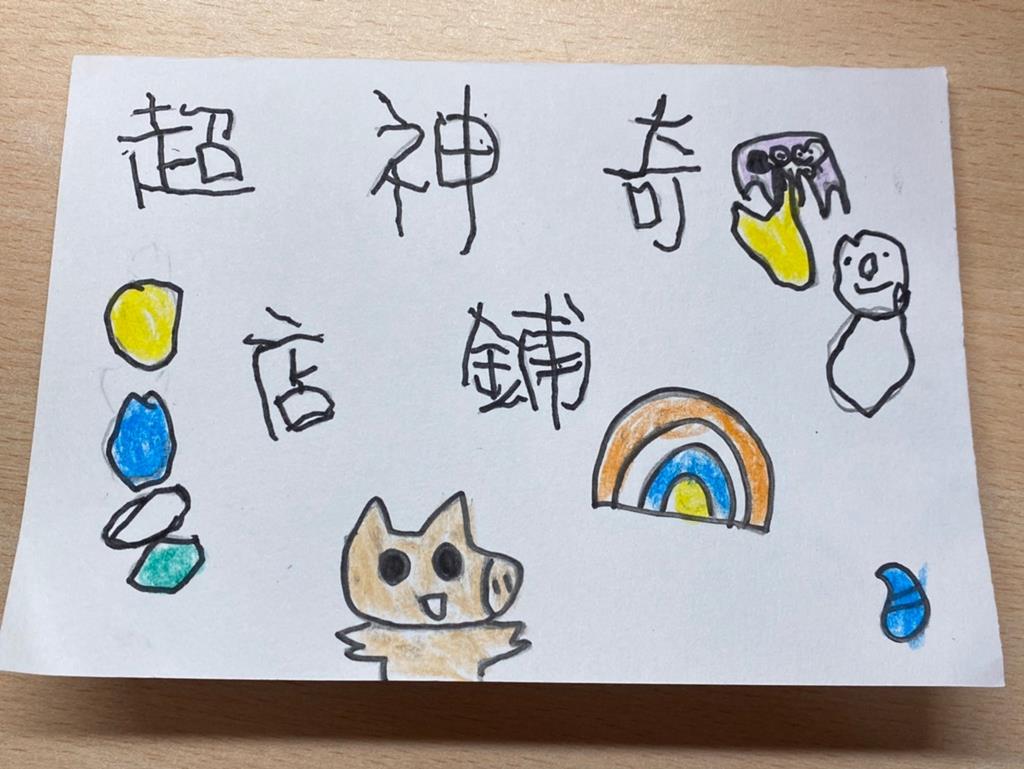 超神奇
店鋪